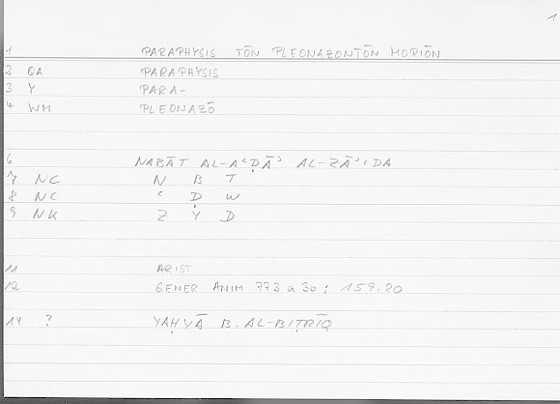 1
1 PARAPHYSIS TŌN PLEONAZONTŌN MORIŌN
2 QA PARAPHYSIS
3 Y PARA-
4 WM PLEONAZŌ
6 NABĀT AL-AʿḌĀʾ AL-ZĀʾIDA
7 NC N B T
8 NC ʿ Ḍ W
9 NK Z Y D
11 ARIST
12 GENER ANIM 773 a 30 ; 159.20
14 ? YAḤYĀ B. AL-BIṬRĪQ